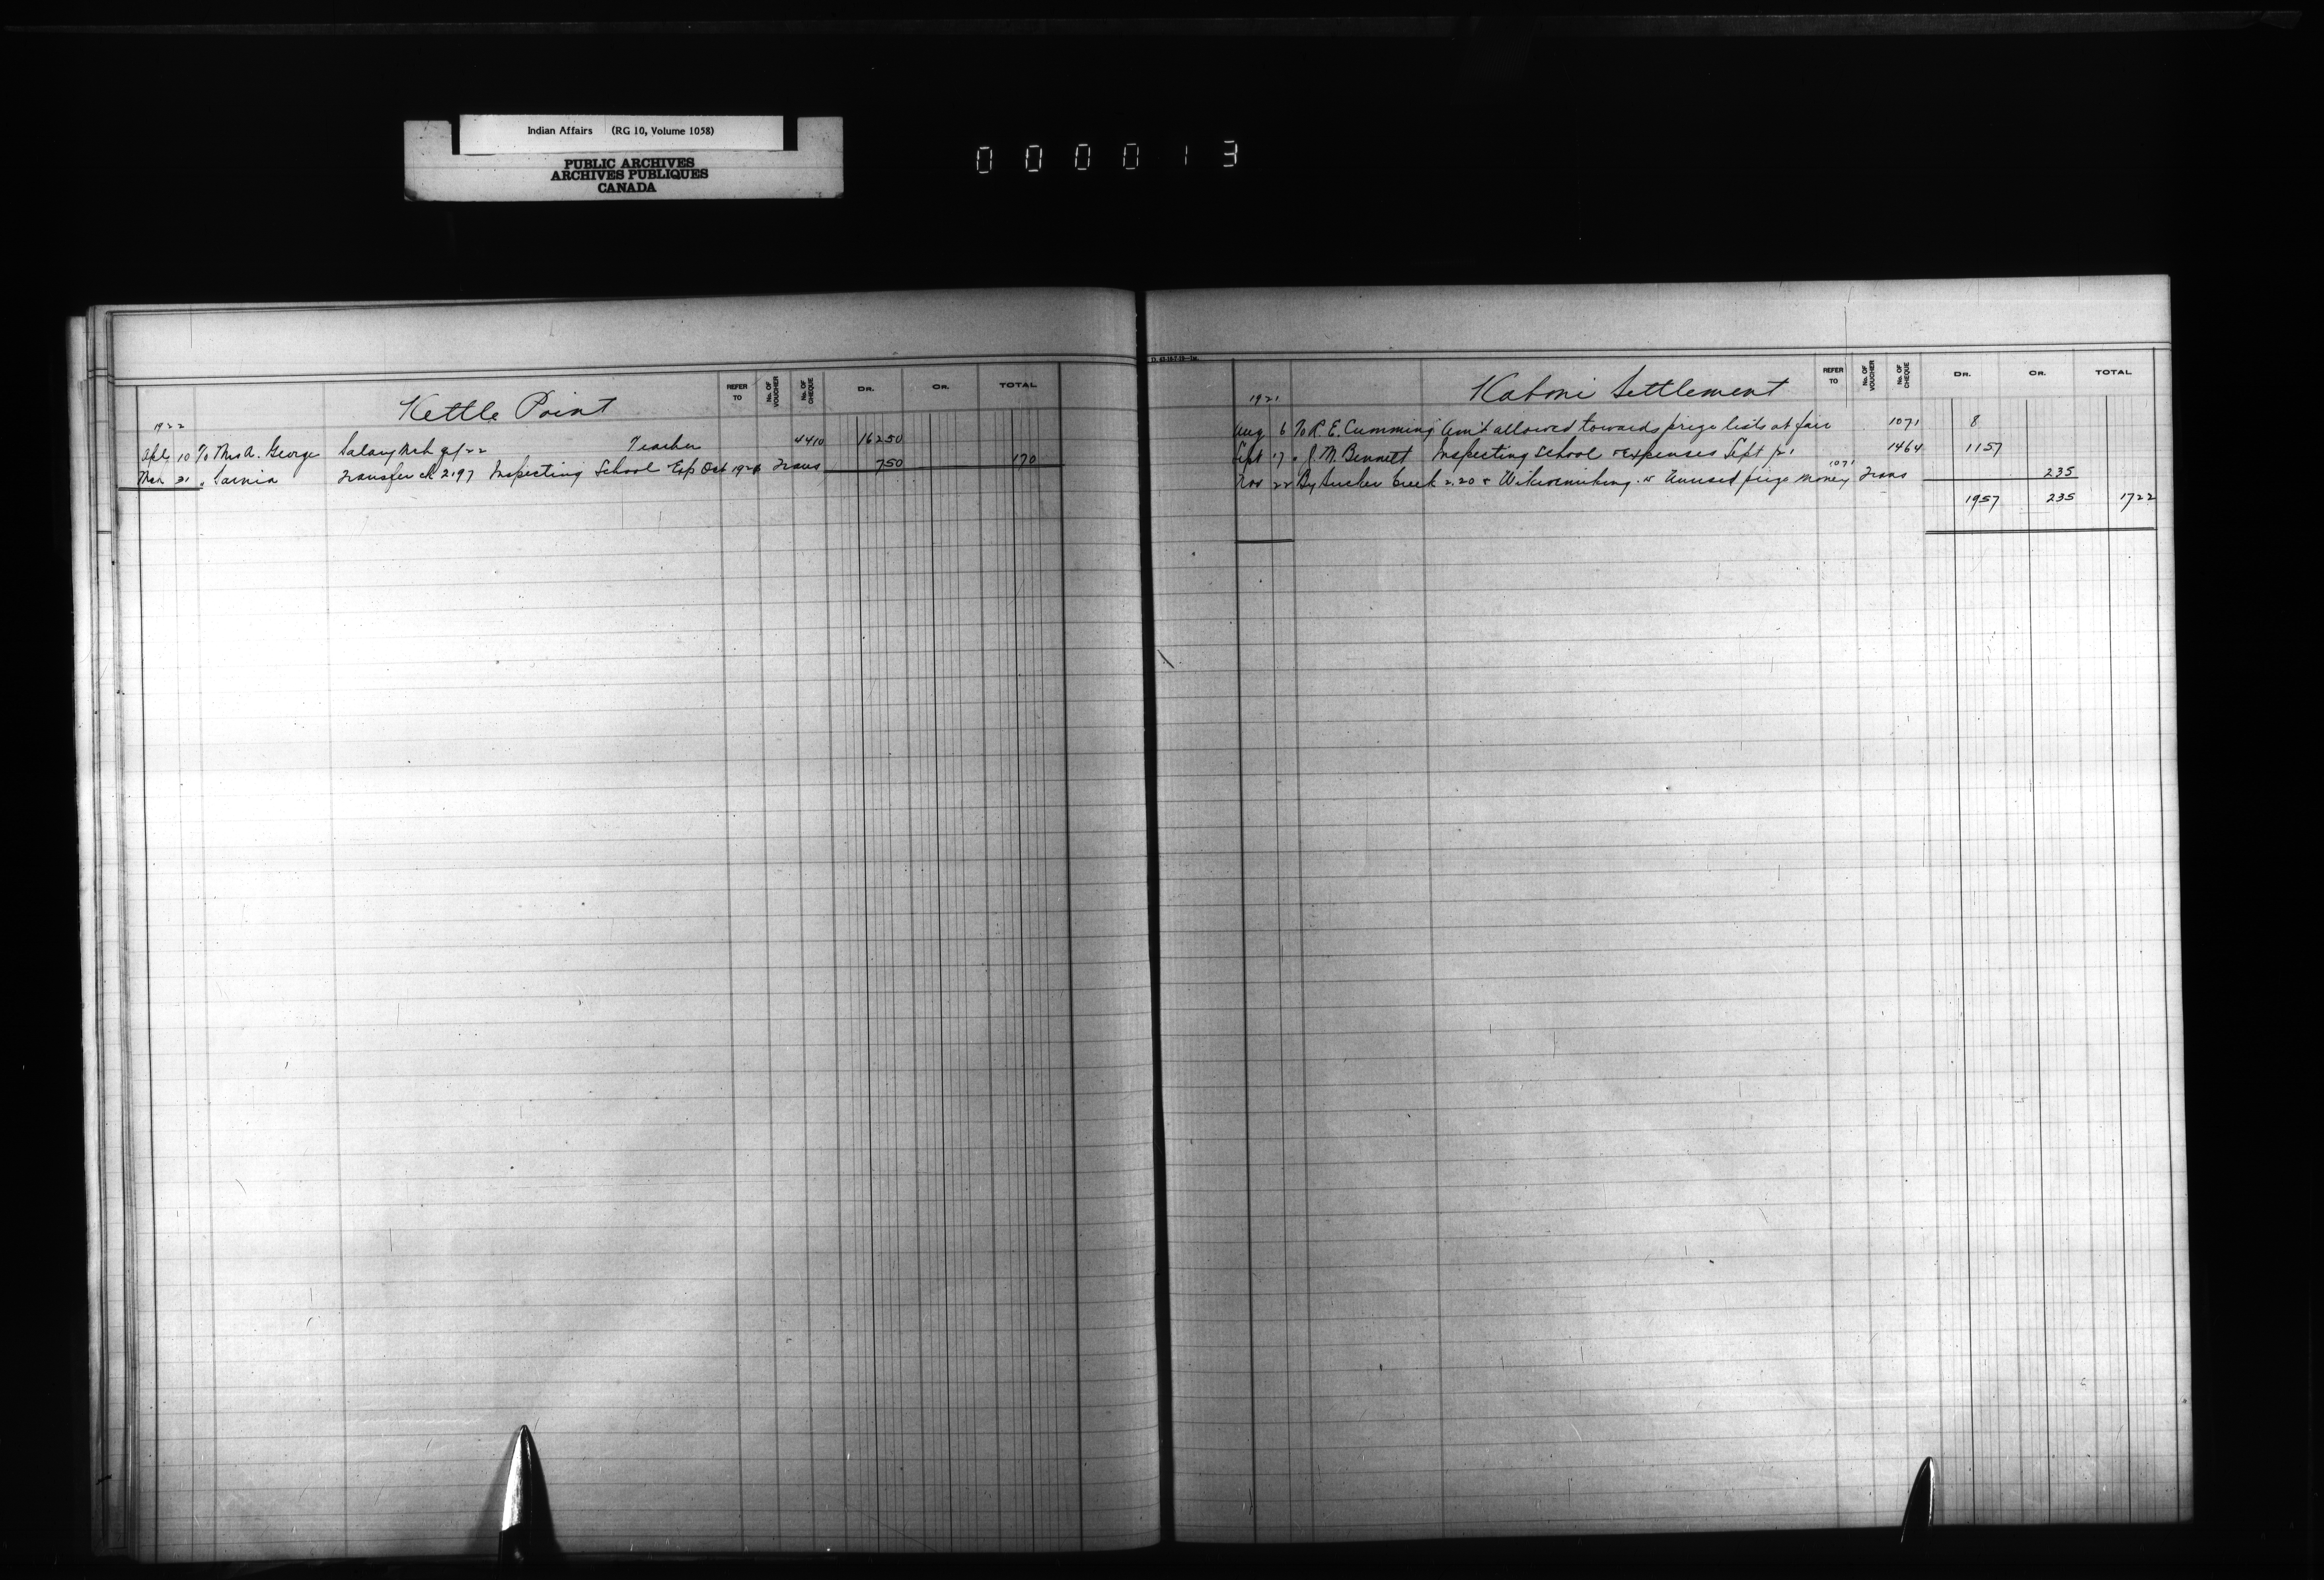 Indian Affairs (RG 10, Volume 1058)
PUBLIC ARCHIVES
ARCHIVES PUBLIQUES
CANADA
0 0 0 0 1 3
Kettle Point
REFER TO No. OF VOUCHER No. OF CHEQUE DR. CR. TOTAL
1922
Apl 10 To Mrs A. George Salary Mch qr/22 Teacher 4410 162 50
Mch 31 " Sarnia Transfer ch 2197 Inspecting School Exp Oct Trans 7 50 170
Kaboni Settlement
REFER TO No. OF VOUCHER No. OF CHEQUE DR. CR. TOTAL
1921
Aug 6 To R. E. Cumming Am't allowed towards prize lists at fair 1071 8
Sept 17 " J. M. Bennett Inspecting School & Expenses Sept 1464 11 57
1071
Nov 22 By Sucker Creek 2.20 & Wikwemikong .15 Unused prize money Trans 2 35
19 57 2 35 17 22